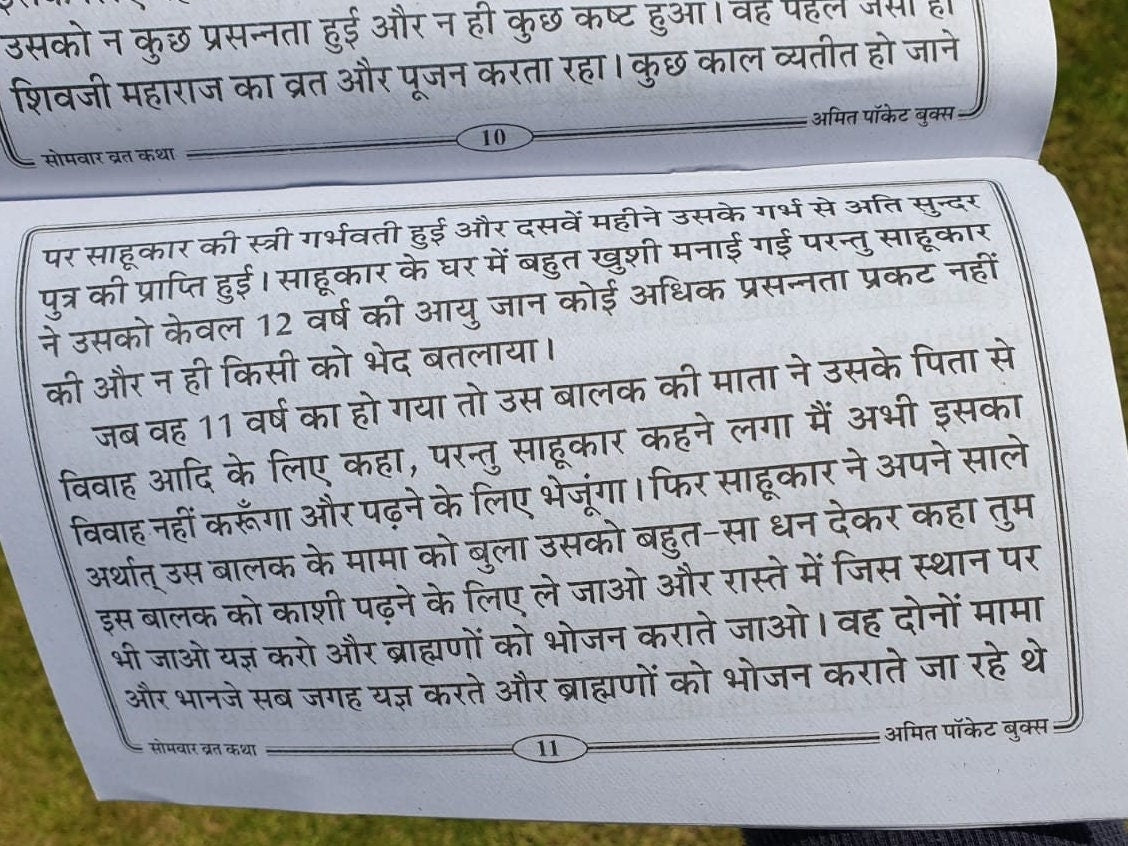 उसको न कुछ प्रसन्नता हुई और न ही कुछ कष्ट हुआ। वह पहले जैसा ही
शिवजी महाराज का व्रत और पूजन करता रहा। कुछ काल व्यतीत हो जाने
सोमवार व्रत कथा 10 अमित पॉकेट बुक्स
पर साहूकार की स्त्री गर्भवती हुई और दसवें महीने उसके गर्भ से अति सुन्दर
पुत्र की प्राप्ति हुई। साहूकार के घर में बहुत खुशी मनाई गई परन्तु साहूकार
ने उसको केवल 12 वर्ष की आयु जान कोई अधिक प्रसन्नता प्रकट नहीं
की और न ही किसी को भेद बतलाया।
जब वह 11 वर्ष का हो गया तो उस बालक की माता ने उसके पिता से
विवाह आदि के लिए कहा, परन्तु साहूकार कहने लगा मैं अभी इसका
विवाह नहीं करूँगा और पढ़ने के लिए भेजूंगा। फिर साहूकार ने अपने साले
अर्थात् उस बालक के मामा को बुला उसको बहुत-सा धन देकर कहा तुम
इस बालक को काशी पढ़ने के लिए ले जाओ और रास्ते में जिस स्थान पर
भी जाओ यज्ञ करो और ब्राह्मणों को भोजन कराते जाओ। वह दोनों मामा
और भानजे सब जगह यज्ञ करते और ब्राह्मणों को भोजन कराते जा रहे थे
सोमवार व्रत कथा 11 अमित पॉकेट बुक्स